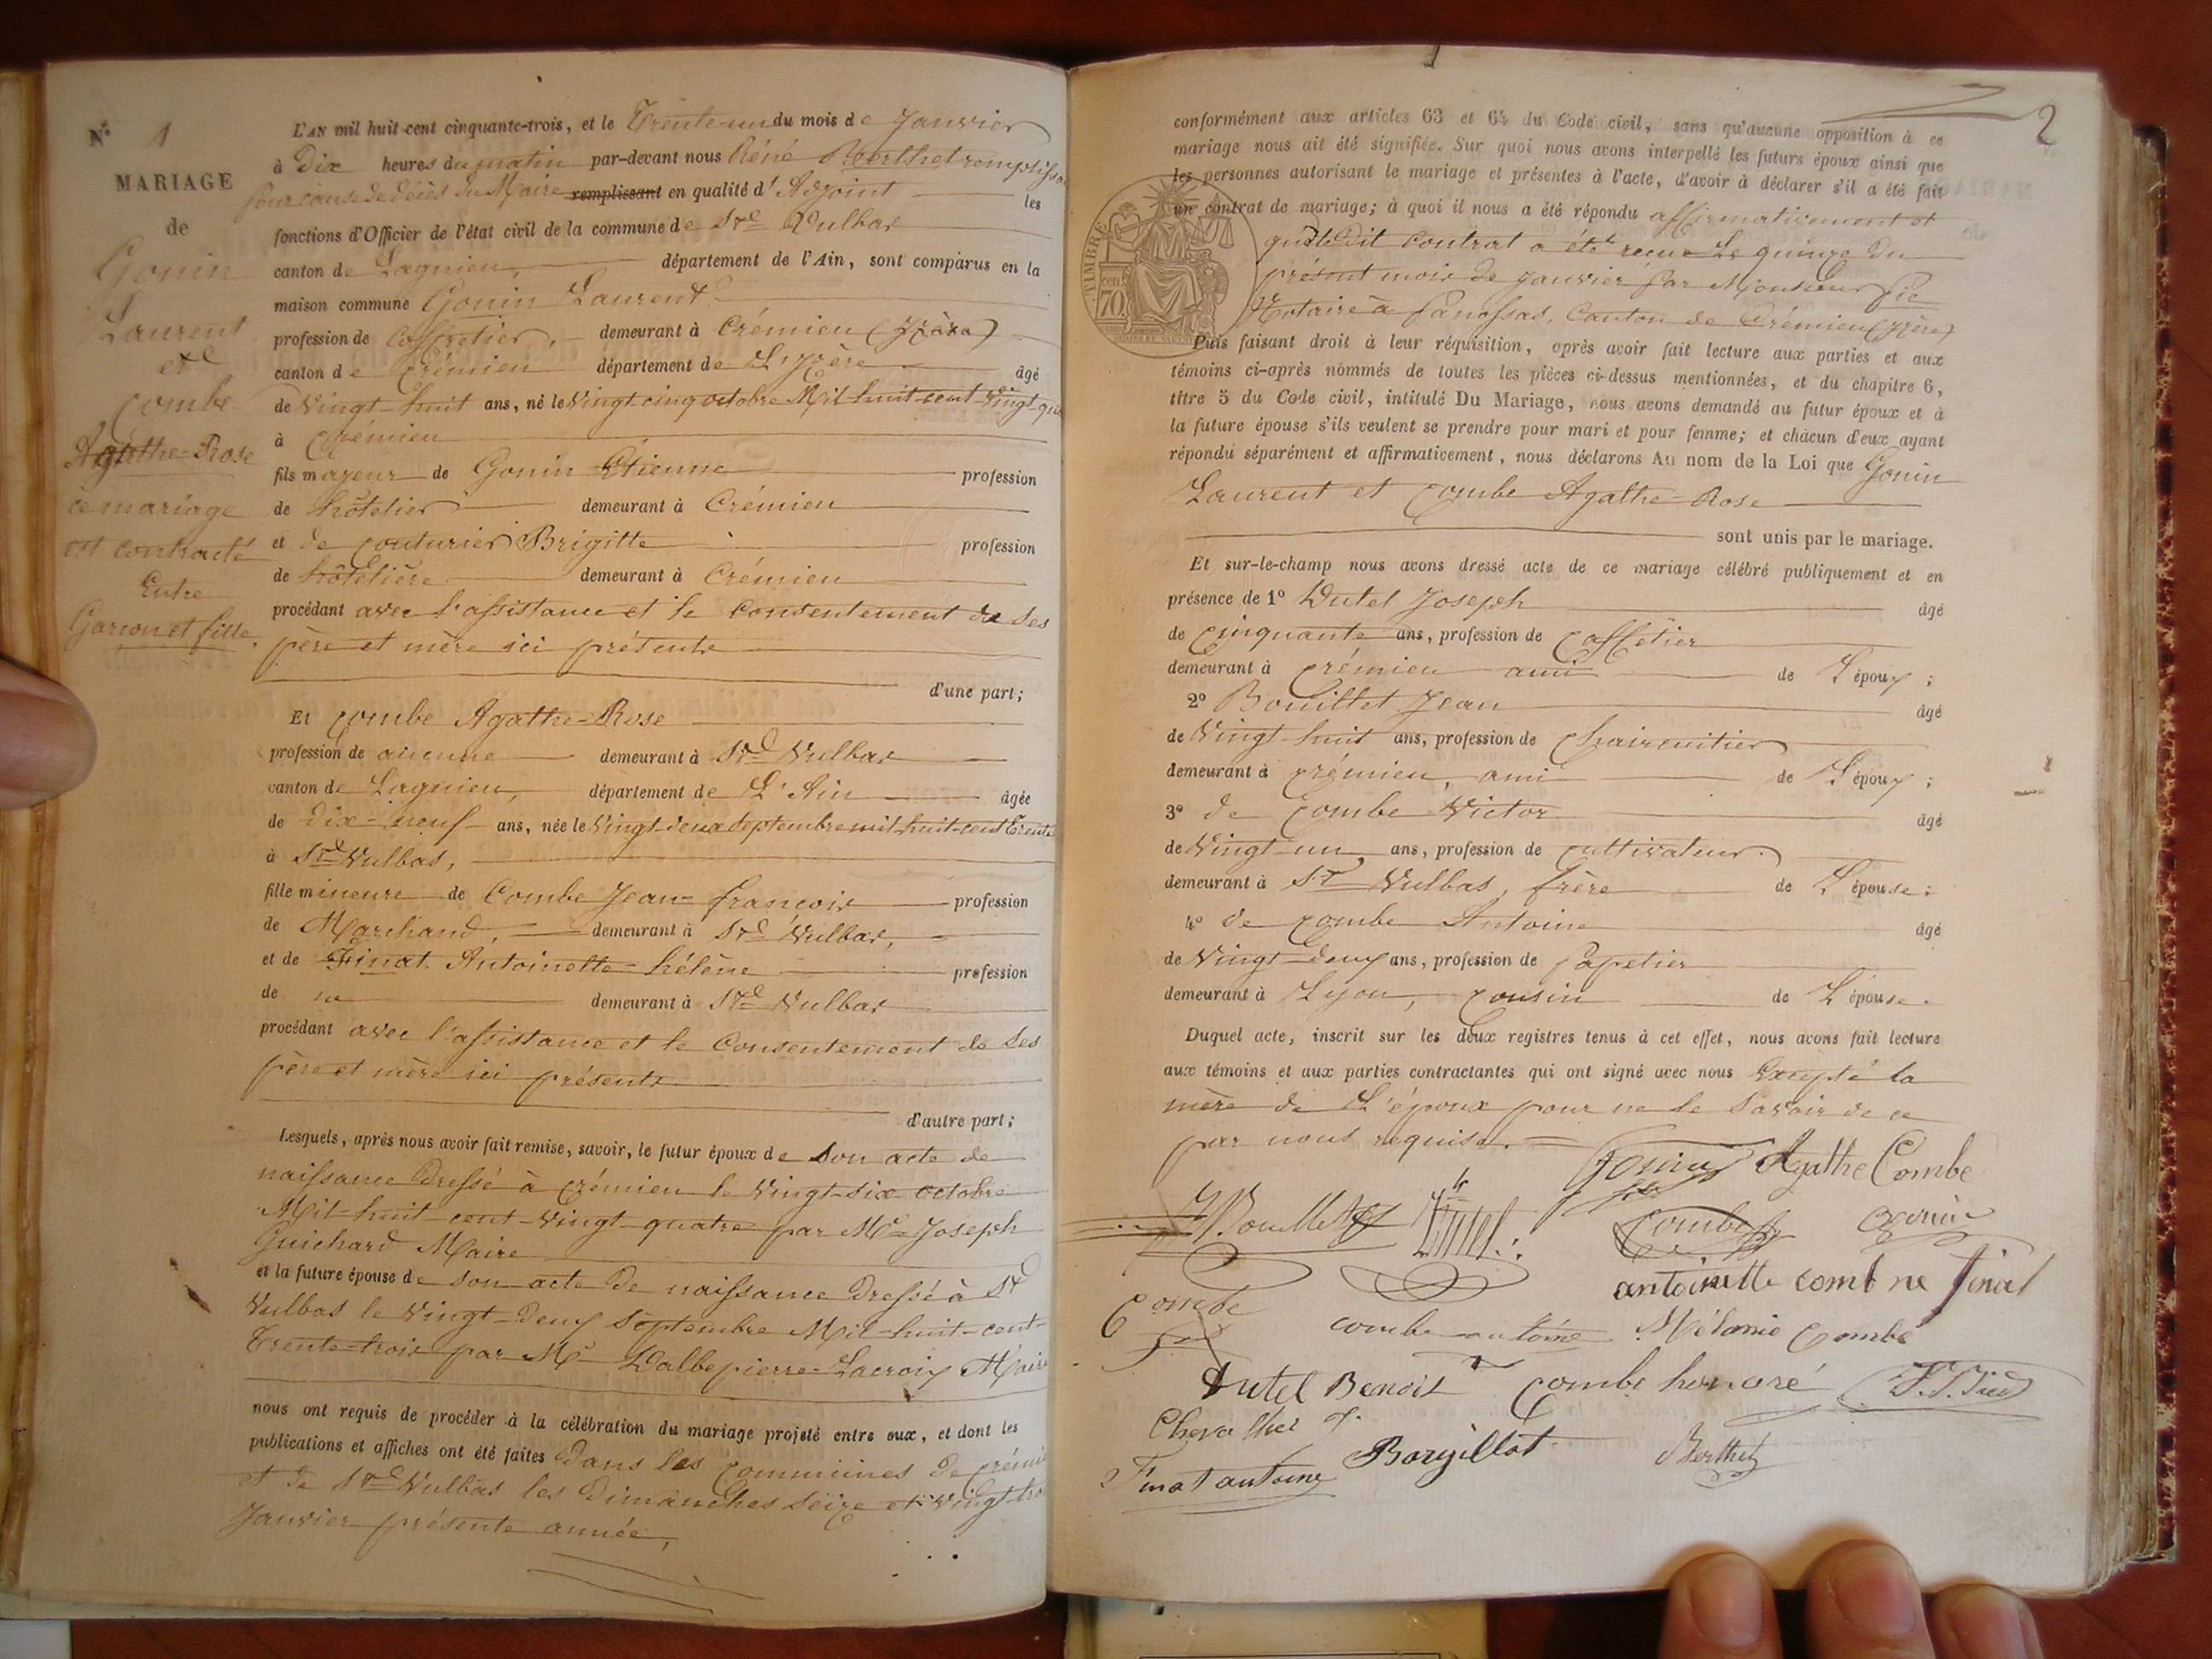 N° 1
MARIAGE
de
Gonin
Laurent
et
Combe
Agathe-Rose
ce mariage
est contracté
Entre
Garçon et fille.
L'AN mil huit cent cinquante-trois, et le Trente-un du mois de Janvier
à Dix heures du matin par-devant nous Réné Berthet remplissant
pour cause de décès du Maire remplissant en qualité d'Adjoint les
fonctions d'Officier de l'état civil de la commune de St Vulbas
canton de Lagnieu, département de l'Ain, sont comparus en la
maison commune Gonin Laurent
profession de Caffetier, demeurant à Crémieu (Isère)
canton de Crémieu département de L'Isère âgé
de Vingt-huit ans, né le Vingt-cinq octobre Mil-huit-cent-vingt-qua
à Crémieu
fils mageur de Gonin Étienne profession
de hôtelier demeurant à Crémieu
et de Couturier Brigitte profession
de hôtelière demeurant à Crémieu
procédant avec l'assistance et le Consentement de ses
père et mère ici présents
d'une part;
Et Combe Agathe-Rose
profession de aucune demeurant à St Vulbas
canton de Lagnieu, département de L'Ain âgée
de Dix-neuf ans, née le Vingt-deux septembre mil-huit-cent trente
à St Vulbas,
fille mineure de Combe Jean-françois profession
de Marchand, demeurant à St Vulbas,
et de Finat Antoinette-hélène profession
de demeurant à St Vulbas
procédant avec l'assistance et le Consentement de ses
père et mère ici présents
d'autre part;
Lesquels, après nous avoir fait remise, savoir, le futur époux de son acte de
naissance dressé à Crémieu le Vingt-six octobre
Mil-huit-cent-vingt-quatre par Mr Joseph
Guichard Maire
et la future épouse de son acte de naissance dressé à St
Vulbas le Vingt-deux Septembre Mil-huit-cent-
Trente-trois par Mr Dalbepierre-Lacroix Maire
nous ont requis de procéder à la célébration du mariage projeté entre eux, et dont les
publications et affiches ont été faites Dans les Communes de Crémieu
et de St Vulbas les Dimanches seize et Vingt-tro
Janvier présente année,
2
conformément aux articles 63 et 64 du Code civil, sans qu'aucune opposition à ce
mariage nous ait été signifiée. Sur quoi nous avons interpellé les futurs époux ainsi que
les personnes autorisant le mariage et présentes à l'acte, d'avoir à déclarer s'il a été fait
un contrat de mariage; à quoi il nous a été répondu affirmativement et
que le Dit Contrat a été recue Le quinze Du
présent mois de Janvier par Monsieur Pic
Notaire à Panossas, Canton de Crémieu (Isère)
TIMBRE
70
Puis faisant droit à leur réquisition, après avoir fait lecture aux parties et aux
témoins ci-après nommés de toutes les pièces ci-dessus mentionnées, et du chapitre 6,
titre 5 du Code civil, intitulé Du Mariage, nous avons demandé au futur époux et à
la future épouse s'ils veulent se prendre pour mari et pour femme; et chacun d'eux ayant
répondu séparément et affirmativement, nous déclarons Au nom de la Loi que Gonin
Laurent et Combe Agathe-Rose
sont unis par le mariage.
Et sur-le-champ nous avons dressé acte de ce mariage célébré publiquement et en
présence de 1° Dutel Joseph âgé
de Cinquante ans, profession de Caffetier
demeurant à Crémieu ami de L'époux;
2° Bouillet Jean âgé
de Vingt-huit ans, profession de Chaircuitier
demeurant à Crémieu, ami de L'époux;
3° de Combe Victor âgé
de Vingt-un, ans, profession de Cultivateur.
demeurant à St Vulbas, frère de L'épouse;
4° de Combe Antoine âgé
de Vingt-deux ans, profession de Papetier
demeurant à Lyon, Cousin de L'épouse.
Duquel acte, inscrit sur les deux registres tenus à cet effet, nous avons fait lecture
aux témoins et aux parties contractantes qui ont signé avec nous Excepté la
mère de L'époux pour ne le Savoir de ce
par nous requise.
Gonin Agathe Combe
Bouillet Dutel Combe Gonin
antoinette comb ne finat
Combe
combe antoine Mélanie Combe
Dutel Benoit Combe honoré
Bouillot Berthet
Finat antoine